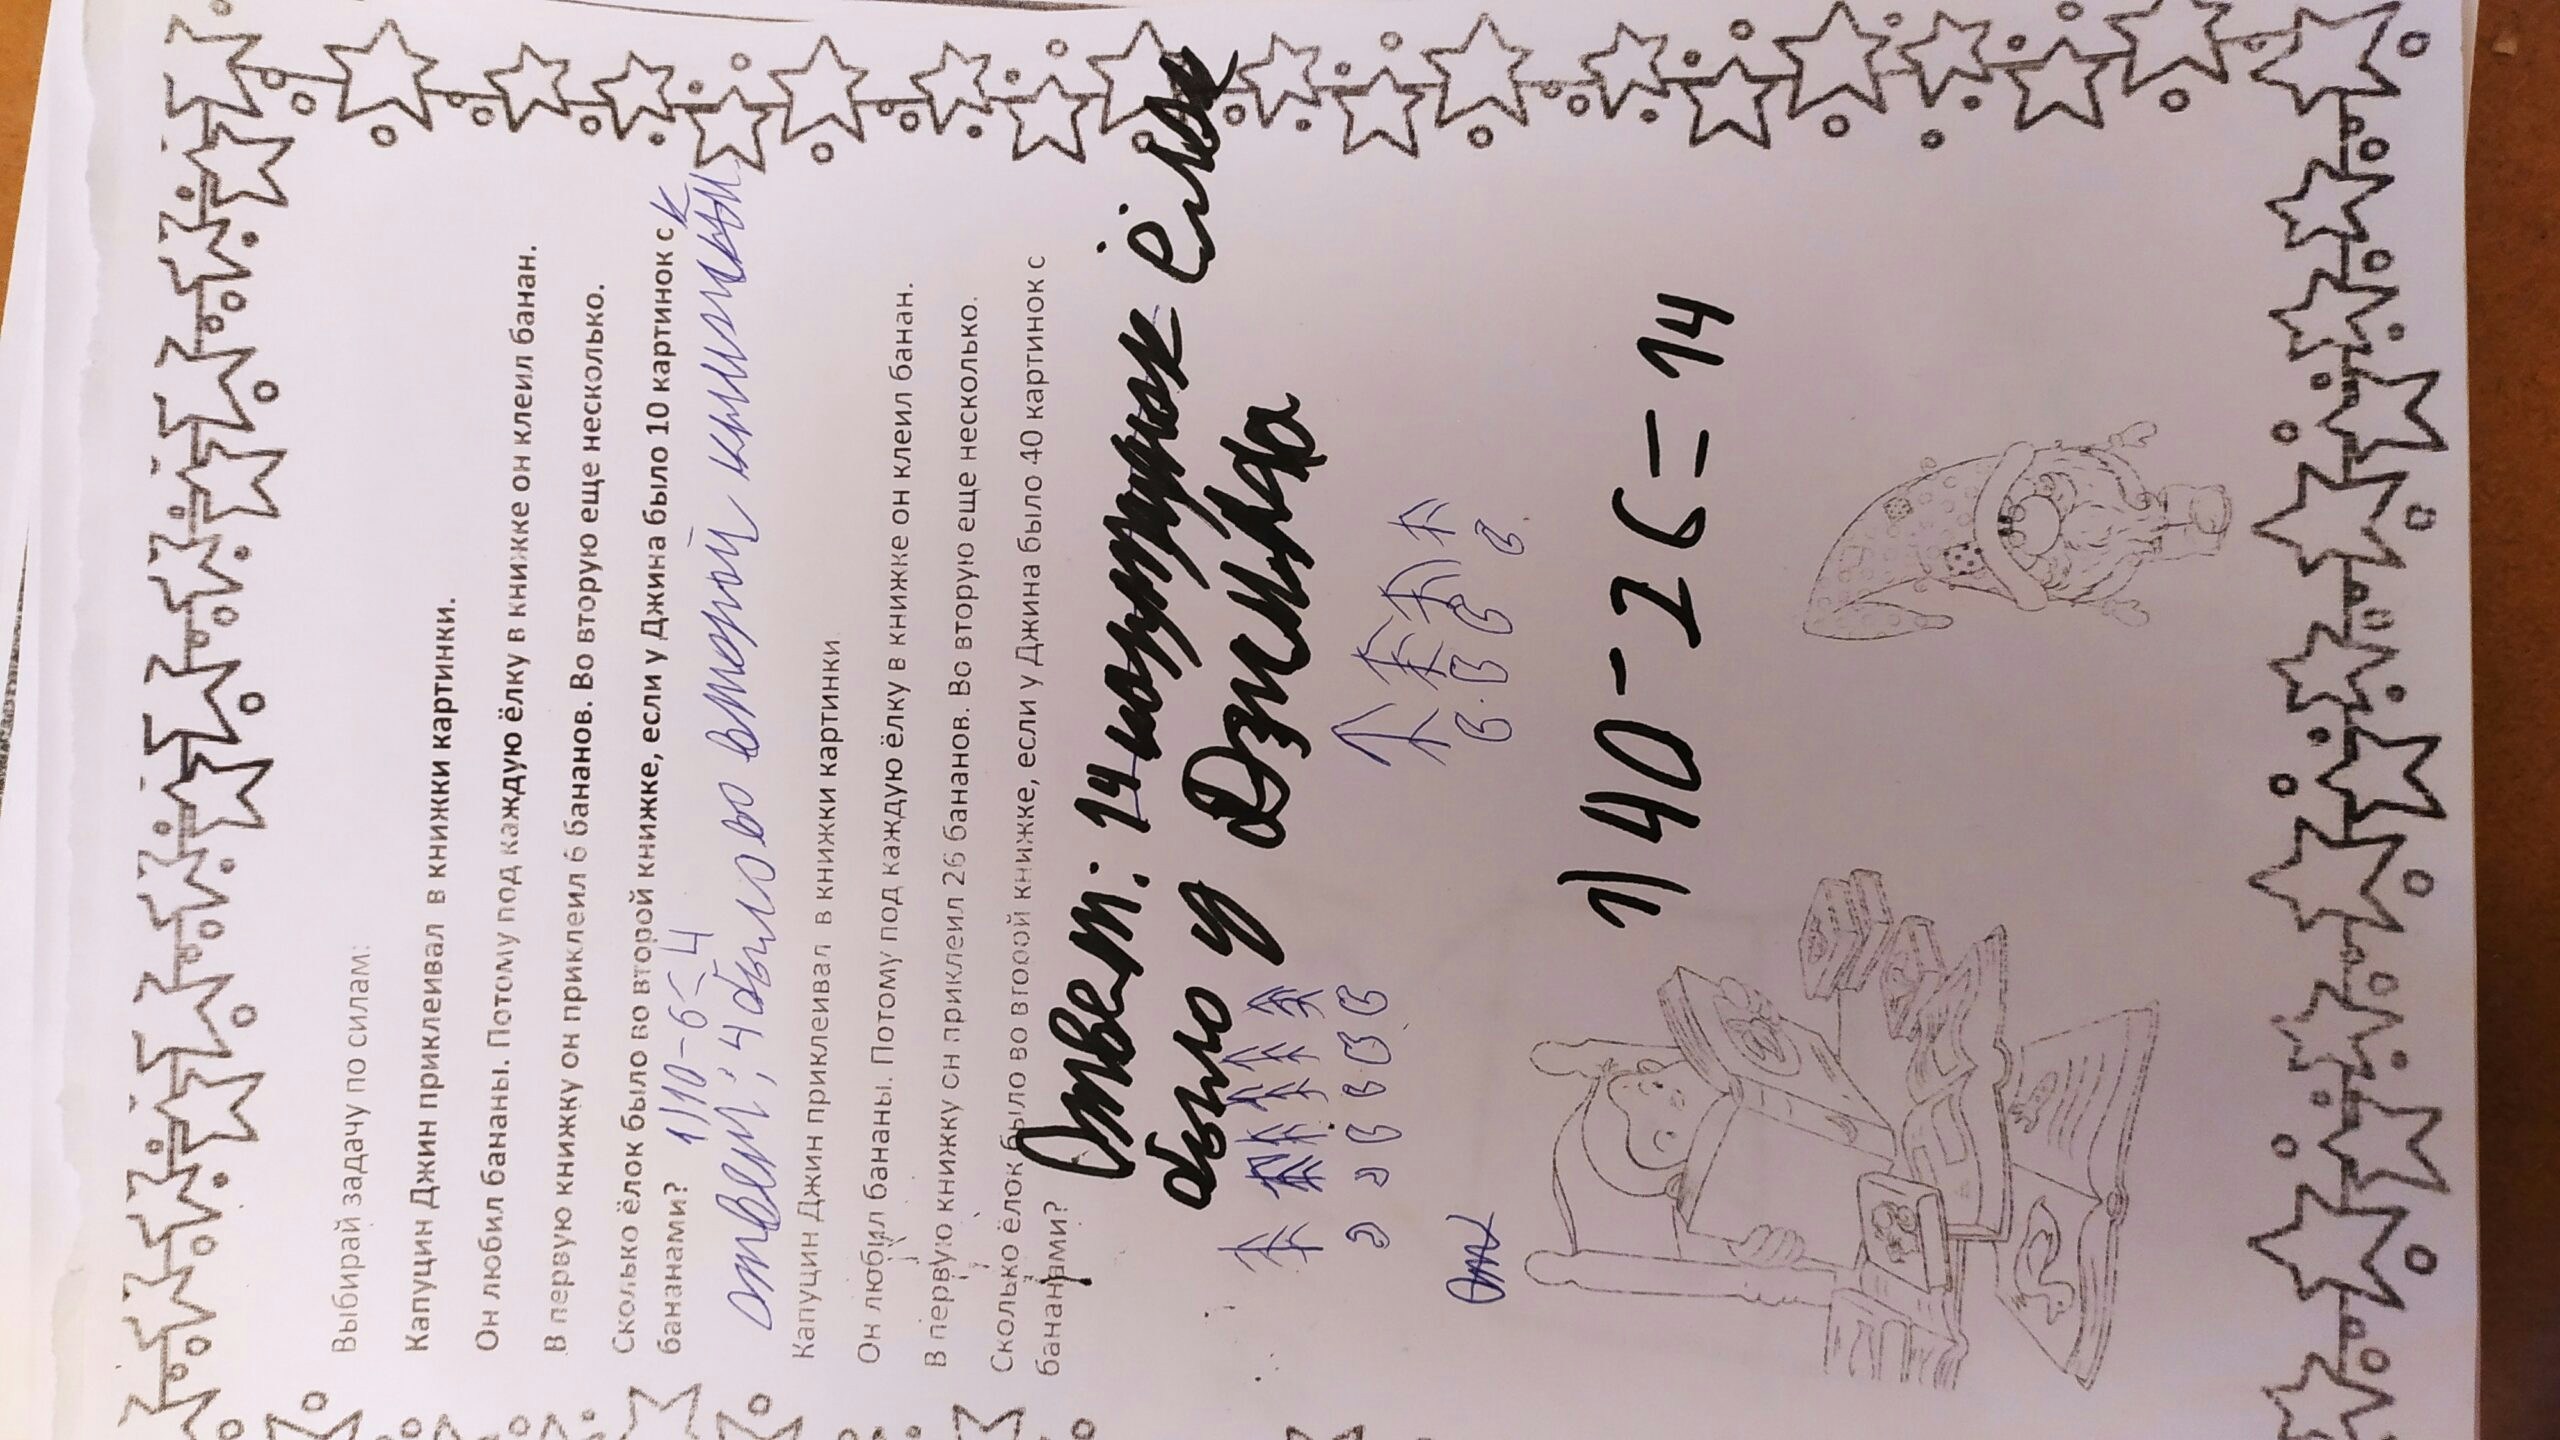 Выбирай задачу по силам:
Капуцин Джин приклеивал в книжки картинки.
Он любил бананы. Потому под каждую ёлку в книжке он клеил банан.
В первую книжку он приклеил 6 бананов. Во вторую еще несколько.
Сколько ёлок было во второй книжке, если у Джина было 10 картинок с
бананами? 1) 10-6=4
ответ: 4 было во второй
Капуцин Джин приклеивал в книжки картинки
Он любил бананы. Потому под каждую ёлку в книжке он клеил банан.
В первую книжку он приклеил 26 бананов. Во вторую еще несколько.
Сколько ёлок было во второй книжке, если у Джина было 40 картинок с
бананами?
Ответ: 14 ёлок
было у Джина
1) 40-26=14